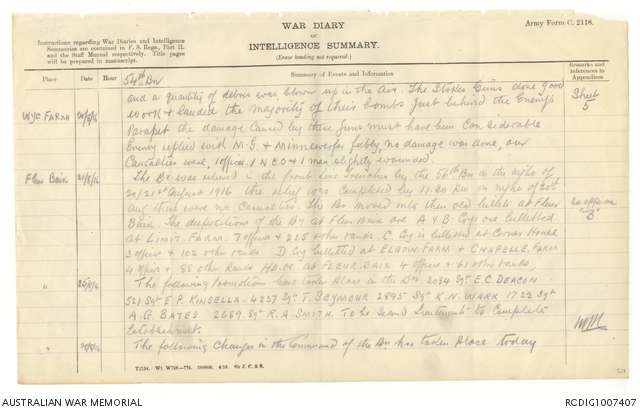 WAR DIARY
OR
INTELLIGENCE SUMMARY.
(Erase heading not required.)
Army Form C. 2118.
Instructions regarding War Diaries and Intelligence
Summaries are contained in F. S. Regs., Part II.
and the Staff Manual respectively. Title pages
will be prepared in manuscript.
Place Date Hour Summary of Events and Information Remarks and references to Appendices
54th Bn
Sheet 5
and a quantity of debris was blown up in the air. The Stokes Guns done good
Wye Farm work & landed the majority of their bombs just behind the Enemys
Parapet the damage caused by these guns must have been Considerable
Enemy replied with M.G & Minnenwerfer, no damage was done, our
Casualties were, 1 officer 1 NCO & 1 man slightly wounded.
Fleur Baix 21/8/16 The Bn was relieved in the front line trenches by the 56th Bn on the night of
20/21st August 1916 the relief was completed by 11.20 PM on night of 20th
and there were no Casualties. The Bn moved into their old billets at Fleur
Baix. The dispositions of the Bn at Fleur Baix are A & B Coys are billetted
at Limit Farm. 7 officers & 225 other ranks. C Coy is billetted at Corner House
3 officers & 102 other ranks D Coy billetted at Elbow Farm & Chapelle Farm
4 officers & 88 other Ranks HD.Qr at Fleur Baix 4 officers & 61 other ranks
" 25/8/16 The following Promotions have taken Place in the Bn. 2034 Sgt E.C. DEACON
521 Sgt E.P. KINSELLA 4237 Sgt T. SEYMOUR 2895 Sgt K.N. WARK 1722 Sgt
A.G. BATES 2689 Sgt R.A. SMITH. To be Second Lieutenants to Complete
Establishment.
" The following Changes in the Command of the Bn has taken Place today
AUSTRALIAN WAR MEMORIAL
RCDIG1007407